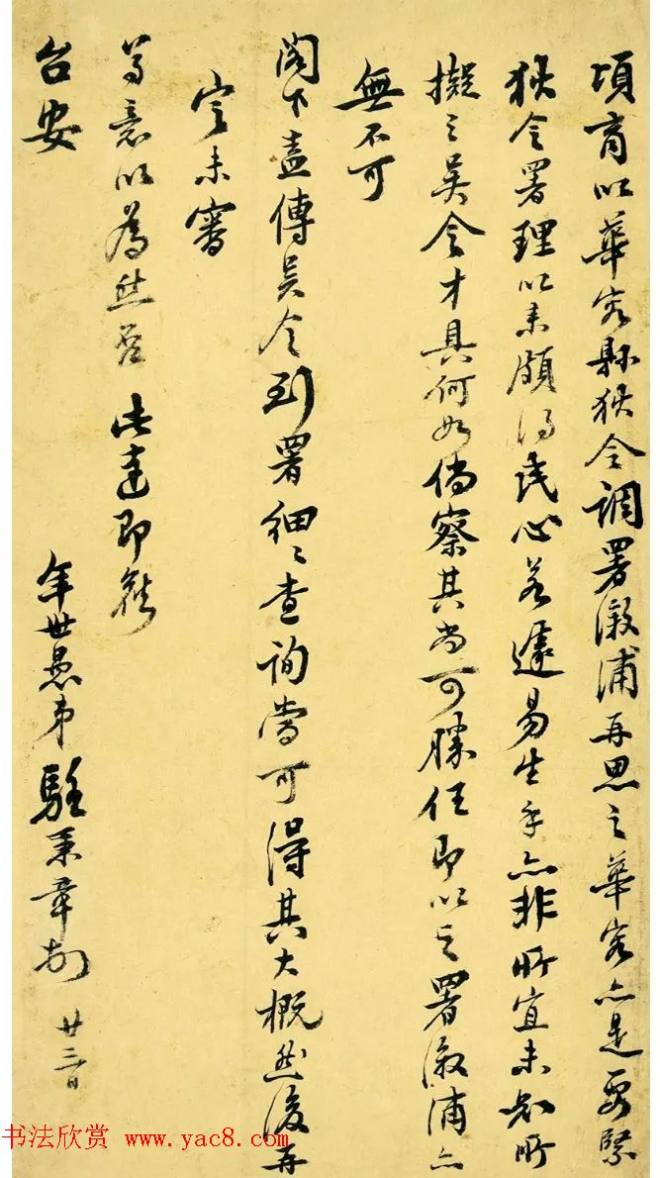 頃商以華容縣狄令調署漵浦再思之華容亦是要緊
狄令署理以來頗得民心若遽易生手亦非所宜未知所
擬之吳令才具何如倘察其尚可勝任即以之署漵浦亦
無不可
閣下盍傳吳令到署細細查詢當可得其大概然後再
定未審
尊意以為然否 此達即頌
台安
年世愚弟駱秉章頓 廿三日
书法欣赏 www.yac8.com